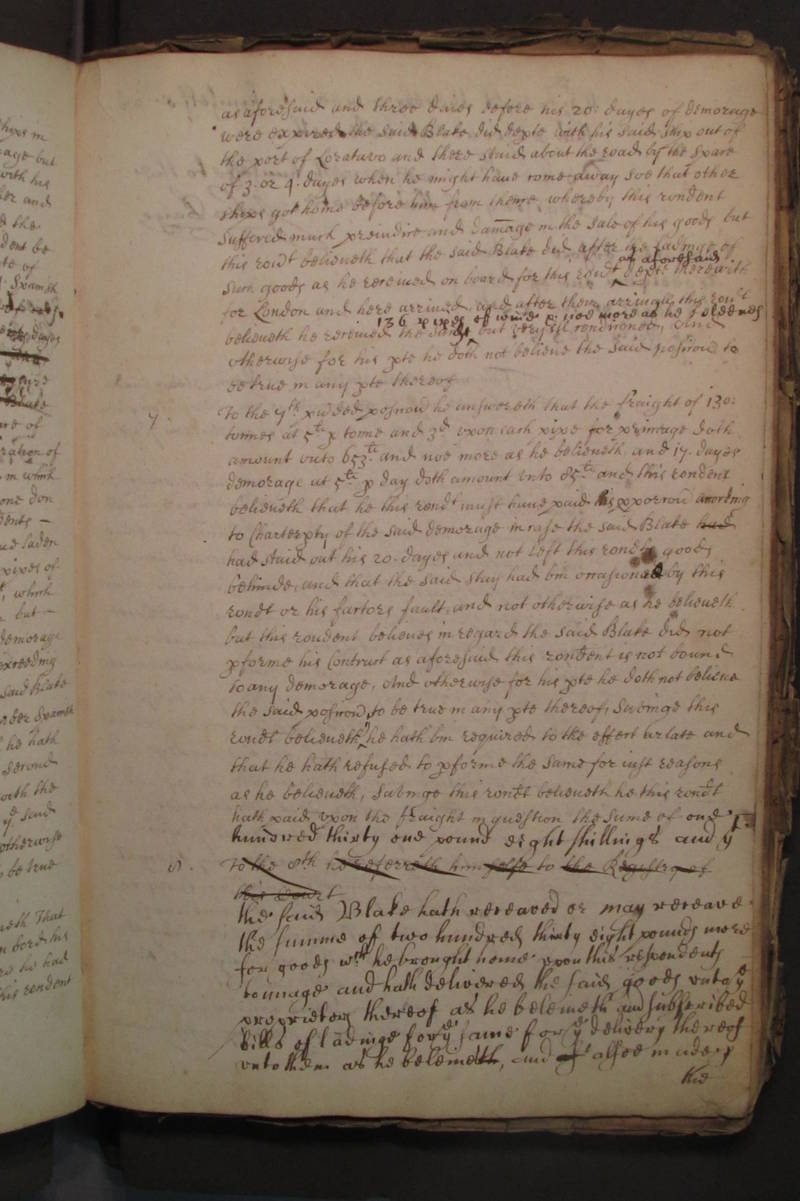 as aforesaid and three daies before his 20: dayes of demorage
were expired the said Blake did depte with his said ship out of
the port of Loratavo and there staid about the road by the space
of 3. or 4. dayes when he might have come away soe that other
ships got home before him from thence, whereby this rondent
suffered much preiudice and damage in the sale of his goods but
this rondt believeth that the said Blake did after the ladinge of
such goods as he received on board for this rondt depte therewith
as aforesaid
for London and here arrived, and after them arringe this rondt
136 pipes of wine p noe more as he beleeves
believeth he received the but very ill conditioned, And
otherwise for his pte he doth not believe the said posicion to
be true in any pte thereof
7. To the 7th posicion he answereth that the fraight of 130:
tonnes at 5li p tonne and 3d upon each pipe for primage doth
amount unto 653li and noe more as he believeth and 17. dayes
demorage at 5li p day doth amount unto 85li and this rondent
believeth that he this rondt must have paid his proporcion according
to Charterpty of the said demorage in case the said Blake had
had staid out his 20. dayes and not left this rondts goods
behinde, and that the said stay had bin occasioned by this
rondt or his factors fault, and not otherwise as he believeth
but this rondent believes in regard the said Blake did not
pforme his Contract as aforesaid this rondent is not bound
to any demorage, And otherwise for his pte he doth not believe
the said posicion to be true in any pte thereof, Savinge this
rondt believeth he hath bin required to the effect arlate and
that he hath refused to pforme the same for iust reasons
as he believeth, Savinge this rondt believeth he this rondt
hath paid upon the fraight in question the sume of one
hundred thirty one pound eight shillings and yt
8. To the 8th he referreth him selfe to the Registry of
this Court
the said Blake hath receaved or may receave
the summe of two hundred thirty eight pounds more
for goods wch he brought home upon this respondents
tonnage and hath delivered the said goods unto ye
proprietors thereof as he beleiveth and subscribed
bills of ladinge for ye same for ye delivery thereof
unto them as he beleiveth, and alsoe made
the